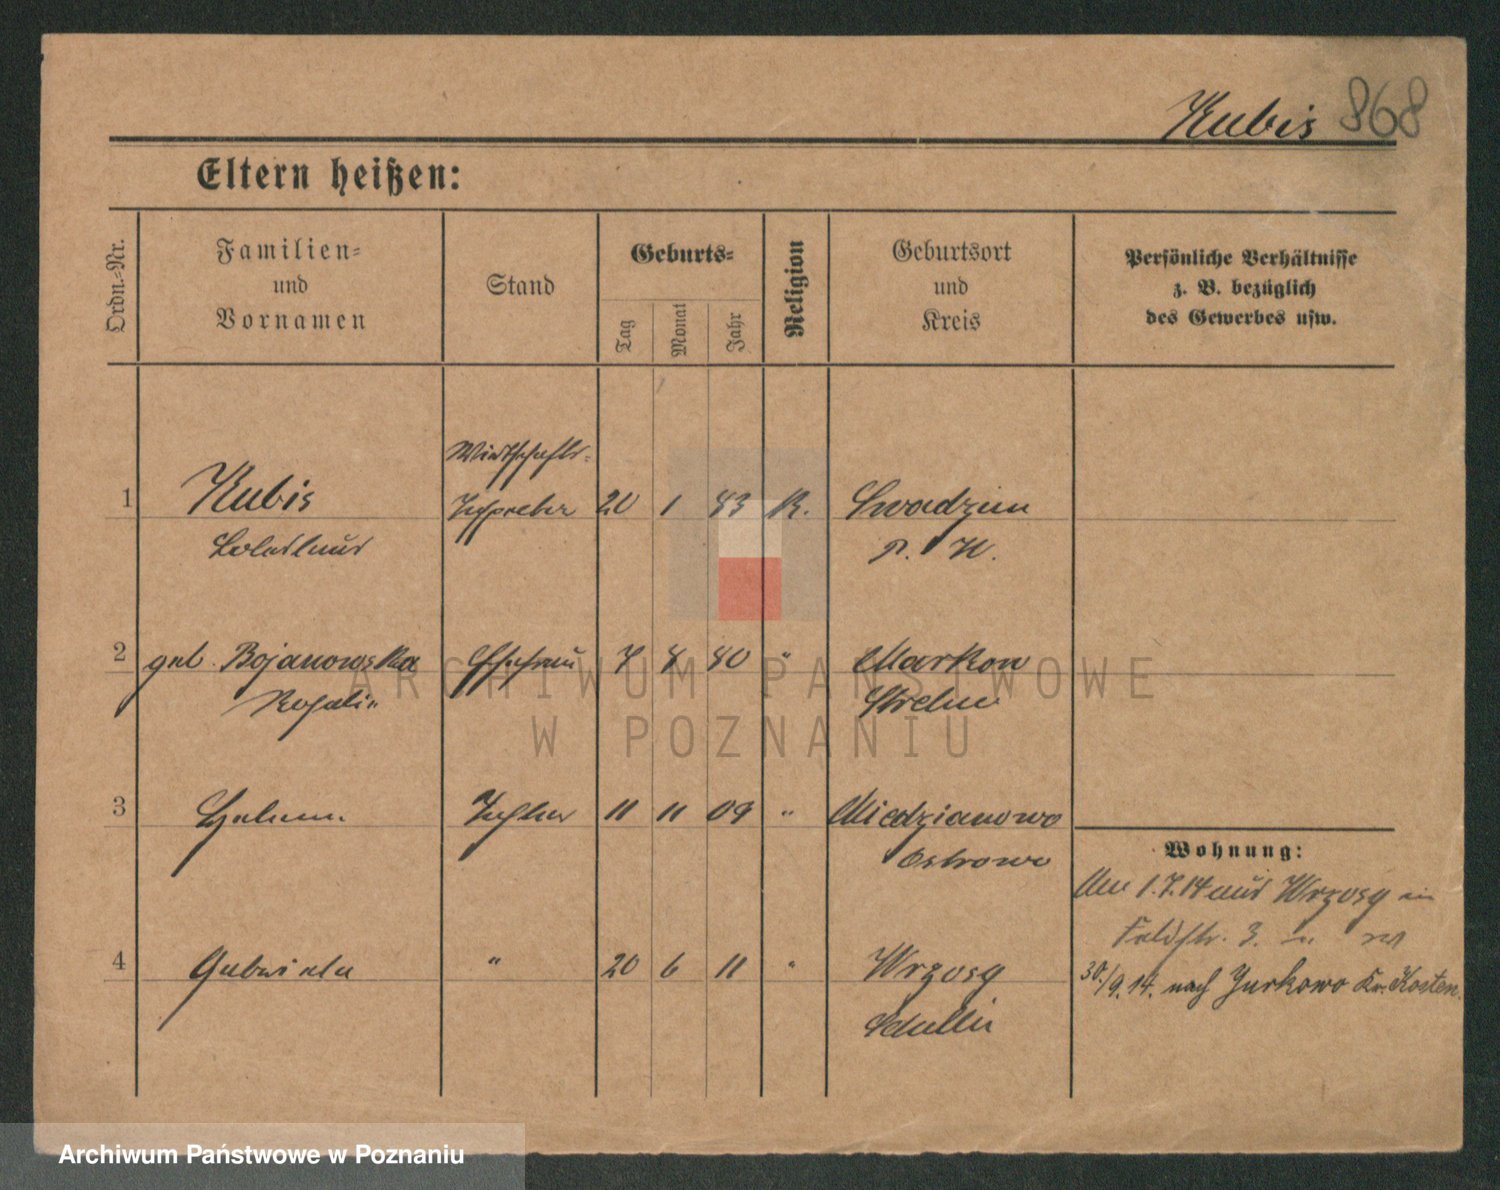 Kubis 868
Eltern heißen:
Ordn.-Nr.
Familien-
und
Vornamen
Stand
Geburts-
Tag
Monat
Jahr
Religion
Geburtsort
und
Kreis
Persönliche Verhältnisse
z. B. bezüglich
des Gewerbes usw.
Wirtschafts-
1 Kubis Inspektor 20 1 83 K. Swadzim
Boleslaus P. W.
2 geb. Bojanowska Ehefrau 7 8 80 " Markowo
Rosalie Strelno
3 Helene Tochter 11 11 09 " Miedzianowo
Ostrowo
Wohnung:
1.7.14 aus Wrzosy in
Feldstr. 3.
4 Gabriele " 20 6 11 " Wrzosy
30./9.14. nach Jurkowo Kr. Kosten.
ARCHIWUM PAŃSTWOWE
W POZNANIU
Archiwum Państwowe w Poznaniu